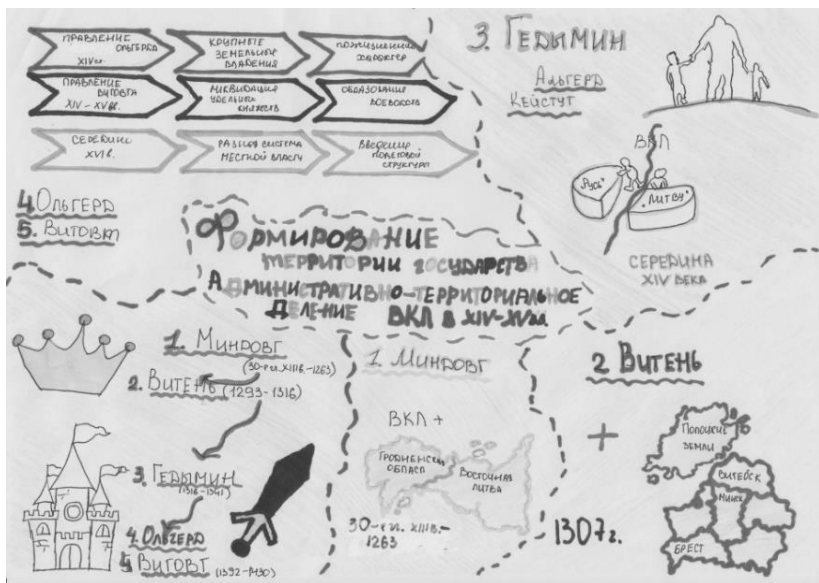 ПРАВЛЕНИЕ
ОЛЬГЕРДА
XIV в.
КРУПНЫЕ
ЗЕМЕЛЬНЫЕ
ВЛАДЕНИЯ
ПОЖИЗНЕННЫЙ
ХАРАКТЕР
ПРАВЛЕНИЕ
ВИТОВТА
XIV – XV вв.
ЛИКВИДАЦИЯ
УДЕЛЬНЫХ
КНЯЖЕСТВ
ОБРАЗОВАНИЕ
ВОЕВОДСТВ
СЕРЕДИНА
XVI в.
РАЗНАЯ СИСТЕМА
МЕСТНОЙ ВЛАСТИ
ВВЕДЕНИЕ
ПОВЕТОВОЙ
СТРУКТУРЫ
4. ОЛЬГЕРД
5. ВИТОВТ
3. ГЕДЫМИН
АЛЬГЕРД
КЕЙСТУТ
ВКЛ
„РУСЬ"
„ЛИТВУ"
СЕРЕДИНА
XIV ВЕКА
ФОРМИРОВАНИЕ
ТЕРРИТОРИИ ГОСУДАРСТВА
АДМИНИСТРАТИВНО-ТЕРРИТОРИАЛЬНОЕ
ДЕЛЕНИЕ ВКЛ В XIV-XV вв
1. МИНДОВГ
(30-е гг. XIII в. – 1263)
2. ВИТЕНЬ (1293 – 1316)
3. ГЕДЫМИН
(1316-1341)
4. ОЛЬГЕРД
5 ВИТОВТ (1392-1430)
1. МИНДОВГ
ВКЛ +
ГРОДНЕНСКАЯ
ОБЛАСТЬ
ВОСТОЧНАЯ
ЛИТВА
30-е гг. XIII в. –
1263
2 ВИТЕНЬ
+
ПОЛОЦКИЕ
ЗЕМЛИ
ВИТЕБСК
МИНСК
БРЕСТ
1307 г.